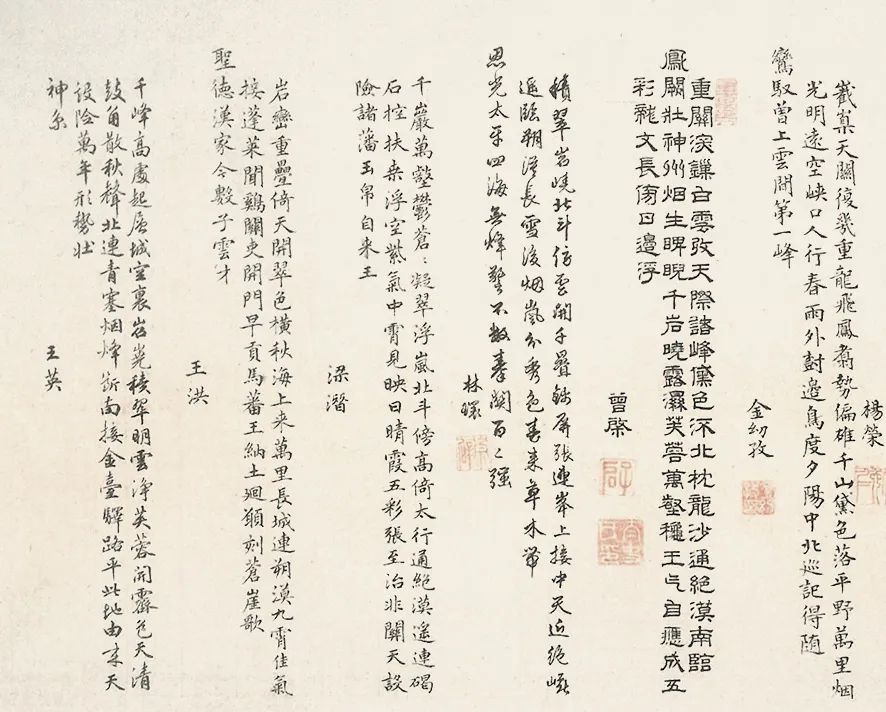 楊榮
嶻嶪天關復幾重龍飛鳳翥勢偏雄千山黛色落平野萬里烟
光明遠空峽口人行春雨外封邊鳥度夕陽中北巡記得隨
鸞馭曾上雲間第一峰
金幼孜
重關深鎖白雲收天際諸峰黛色流北枕龍沙通絕漠南臨
鳳闕壯神州烟生睥睨千岩曉露濕芙蓉萬壑穐王气自應成五
彩龍文長傍日邊浮
曾棨
積翠岧嶢北斗傍雲開千疊錦屏張連峯上接中天近絕巘
遥臨朔漠長雪後烟嵐分秀色春来草木帶
恩光太平四海無烽警不數秦關百二強
林環
千巖萬壑鬱蒼〻凝翠浮嵐北斗傍高倚太行通絕漠遙連碣
石控扶桒浮空紫氣中霄見映日晴霞五彩張至治非關天設
險諸藩玉帛自来王
梁潛
岩巒重疊倚天開翠色橫秋海上来萬里長城連朔漠九霄佳氣
接蓬萊聞鷄關吏開門早貢馬蕃王納土迴願刻蒼崖歌
聖德漢家今數子雲才
王洪
千峰高處起層城空裏岩嶤積翠明雲淨芙蓉開霽色天清
鼓角散秋聲北連青塞烟烽斷南接金臺驛路平此地由来天
設險萬年形勢壯
神京
王英